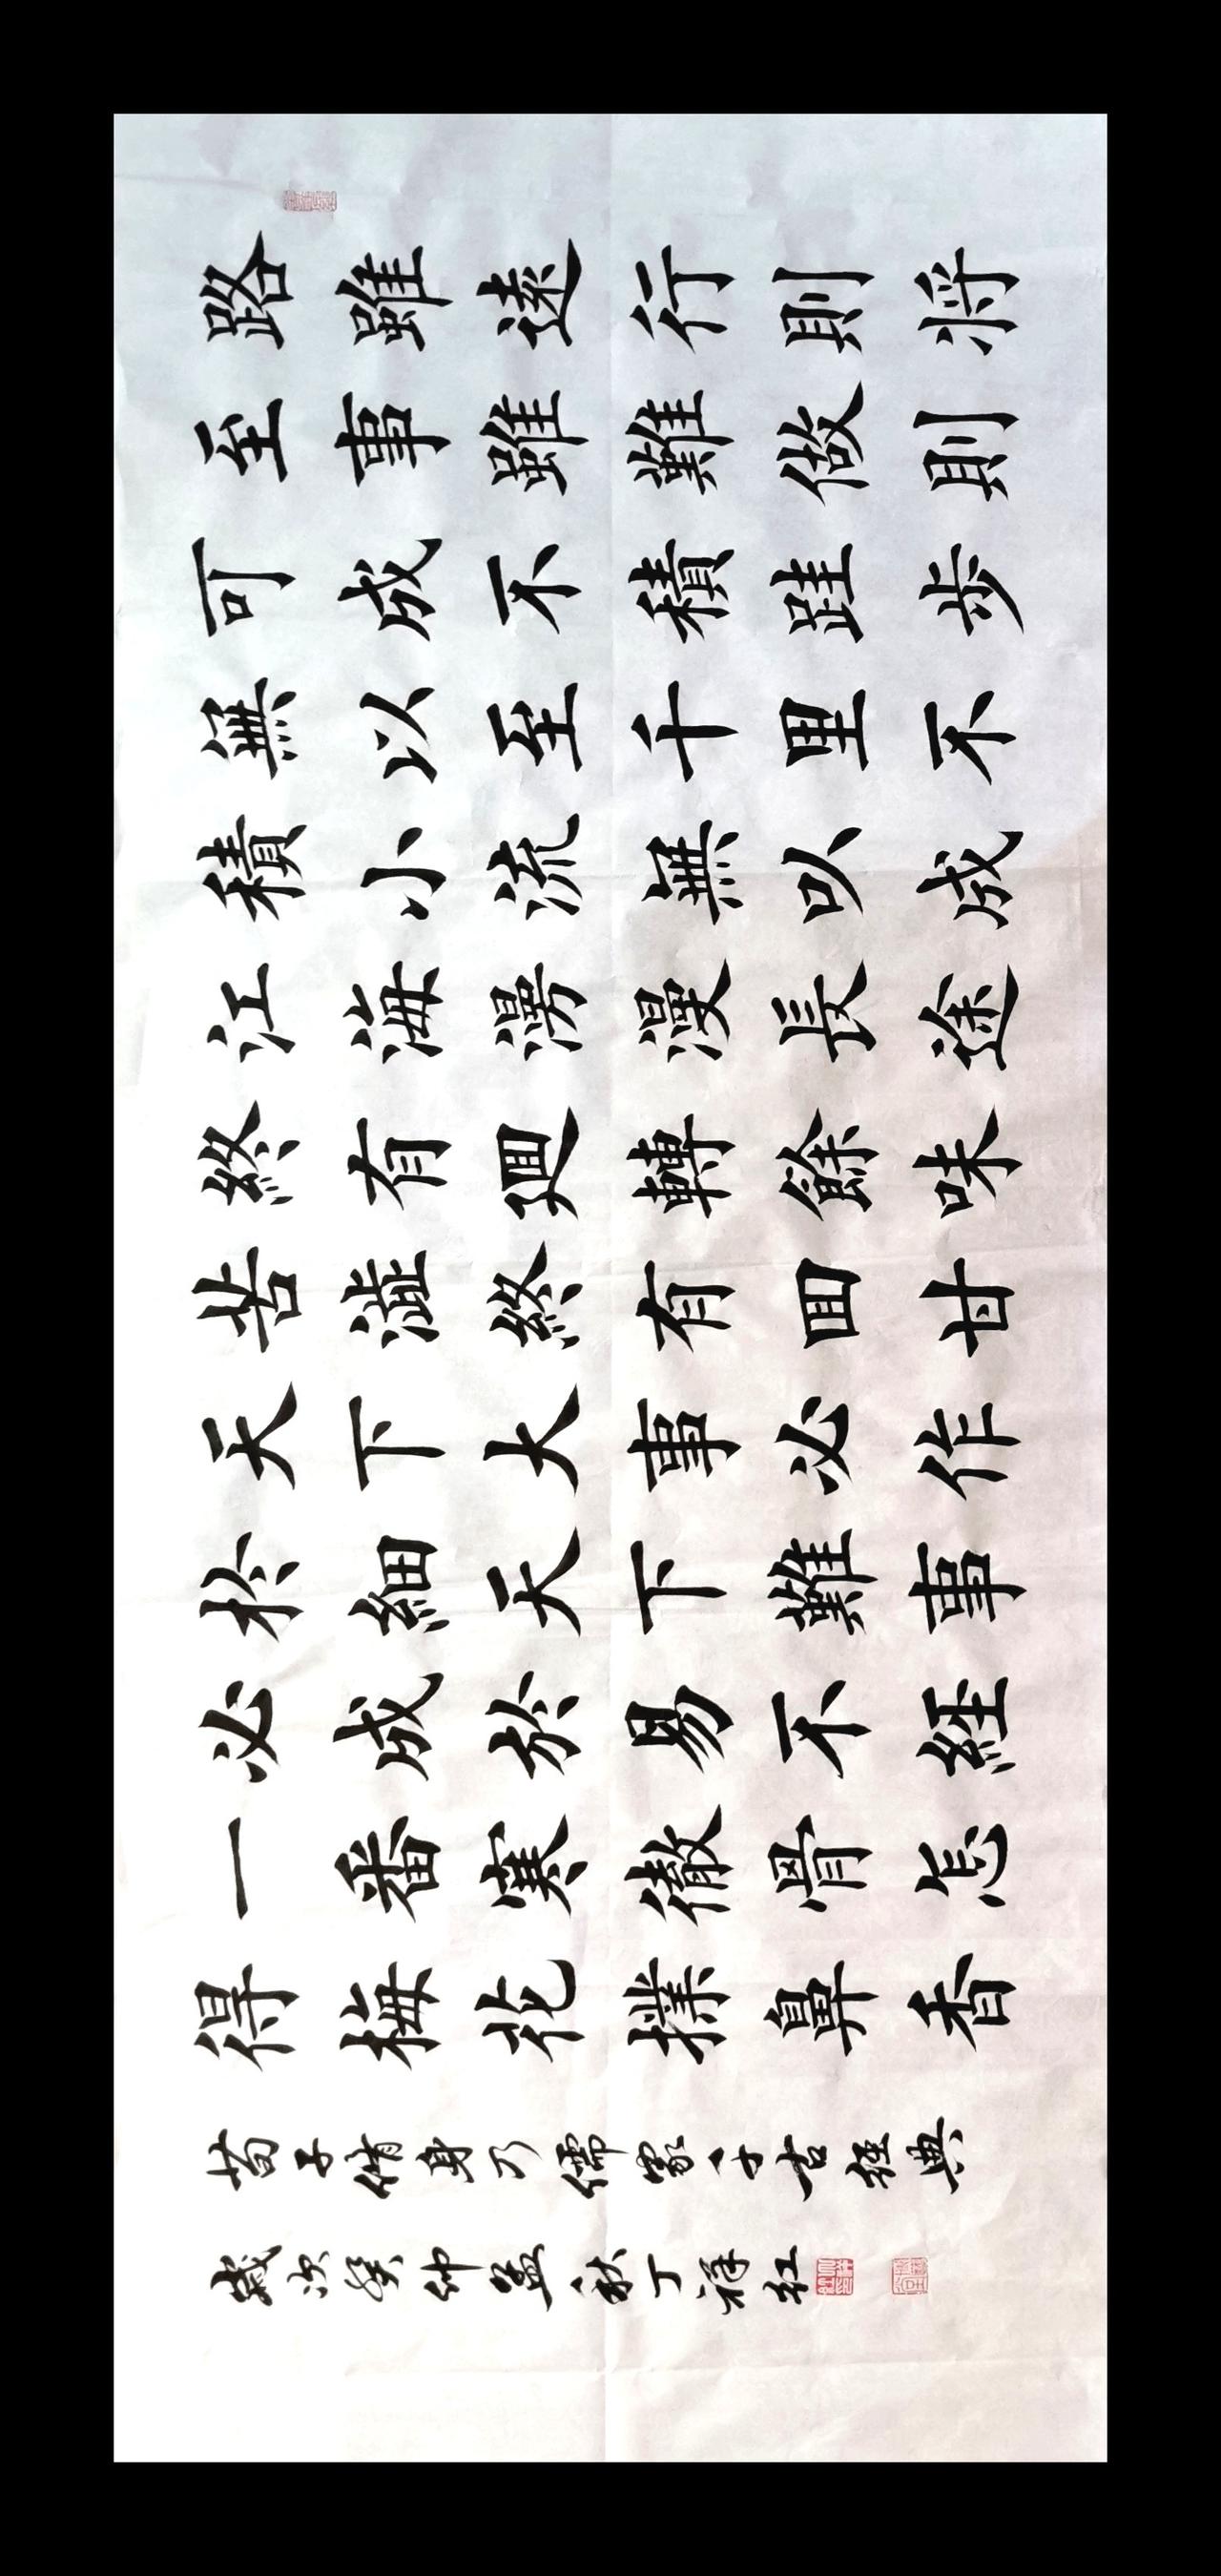 路雖遠行則将
至事雖難做則
可成不積跬步
無以至千里不
積小流無㕥成
江海漫漫長途
終有廻轉餘味
苦澁終有囬甘
天下大事必作
扵細天下難事
必成於易不經
一番寒徹骨怎
得梅花撲鼻香
荀子脩身乃儒家千古經典
歲次癸卯孟秋丁祥紅